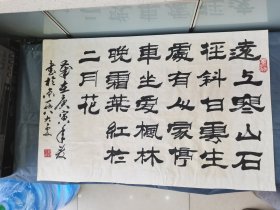 遠上寒山石
徑斜白雲生
處有人家停
車坐愛楓林
晚霜葉紅於
二月花
歲在庚寅年
書於